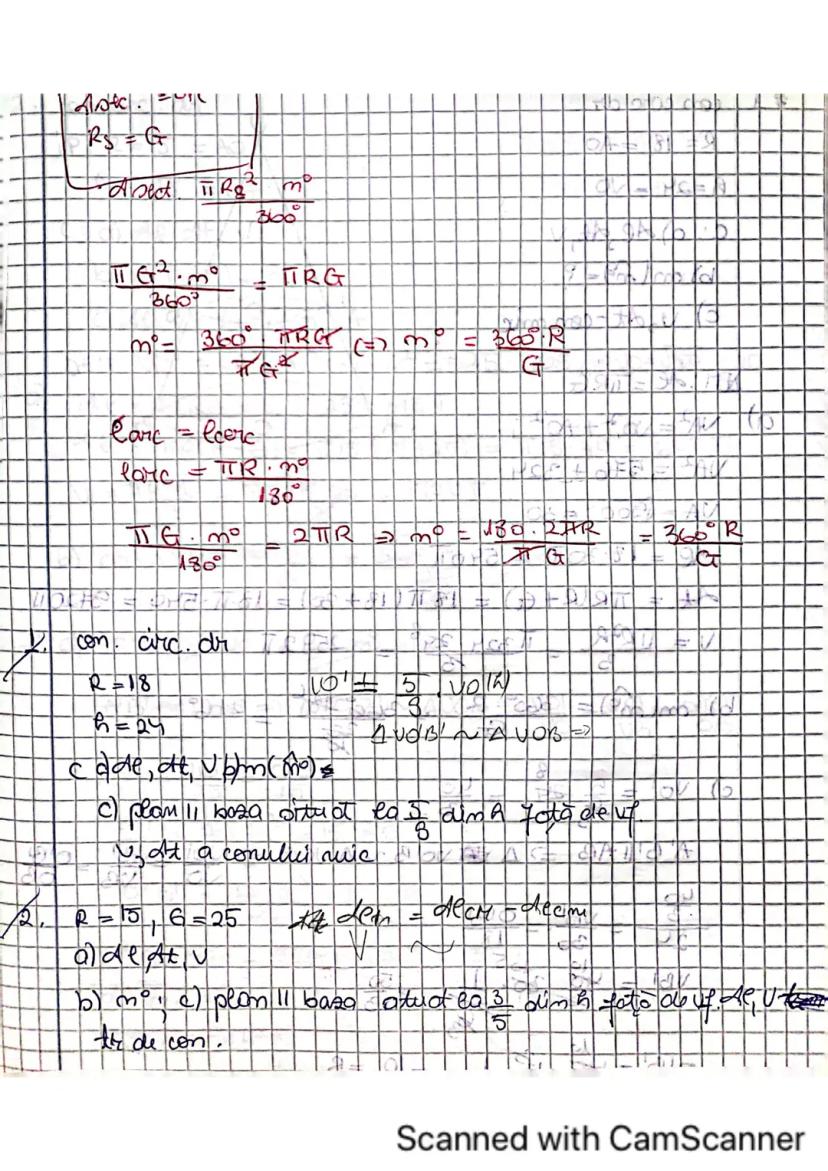 Rs = G
Asect. πRs² m° / 360°
πG² · m° / 360° = πRG
m° = 360° πRG / πG² (=) m° = 360° · R / G
larc = lcerc
larc = πR · m° / 180°
πG · m° / 180° = 2πR => m° = 180 · 2πR / πG = 360° R / G
1. con. circ. dr
R = 18 VO' = 5/8 · VO (h)
h = 24 ΔVO'B' ~ ΔVOB =>
a) Al, At, V b) m(m°)
c) plan || baza situat la 5/8 din h față de vf.
V, At a conului mic
2. R = 15, G = 25
a) Al, At, V
b) m°; c) plan || baza situat la 3/5 din h față de vf. Al, V
tr de con.
Scanned with CamScanner